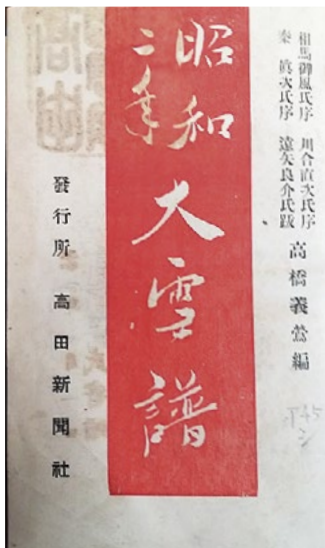 相馬御風氏序 川合直次氏序
秦 眞次氏序 遠矢良介氏跋
高橋義䳨編
昭和
二年
大雪譜
發行所 高田新聞社